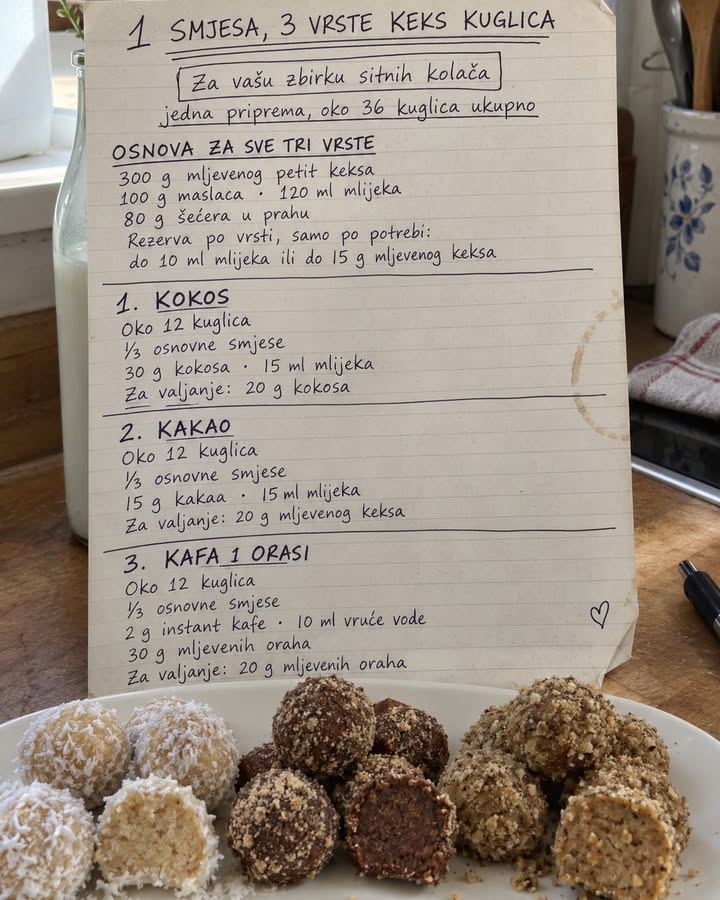 1 SMJESA, 3 VRSTE KEKS KUGLICA
Za vašu zbirku sitnih kolača
jedna priprema, oko 36 kuglica ukupno
OSNOVA ZA SVE TRI VRSTE
300 g mljevenog petit keksa
100 g maslaca · 120 ml mlijeka
80 g šećera u prahu
Rezerva po vrsti, samo po potrebi:
do 10 ml mlijeka ili do 15 g mljevenog keksa
1. KOKOS
Oko 12 kuglica
⅓ osnovne smjese
30 g kokosa · 15 ml mlijeka
Za valjanje: 20 g kokosa
2. KAKAO
Oko 12 kuglica
⅓ osnovne smjese
15 g kakaa · 15 ml mlijeka
Za valjanje: 20 g mljevenog keksa
3. KAFA I ORASI
Oko 12 kuglica
⅓ osnovne smjese
2 g instant kafe · 10 ml vruće vode
30 g mljevenih oraha
Za valjanje: 20 g mljevenih oraha